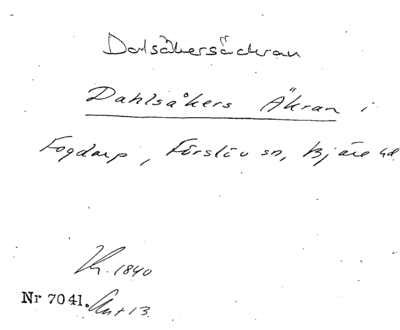 Dalsåkersäckran
Dahlsåkers Äkran i
Fogdarp, Förslöv sn, Bjäre hd.
1840
Nr 7041. Akt 13.